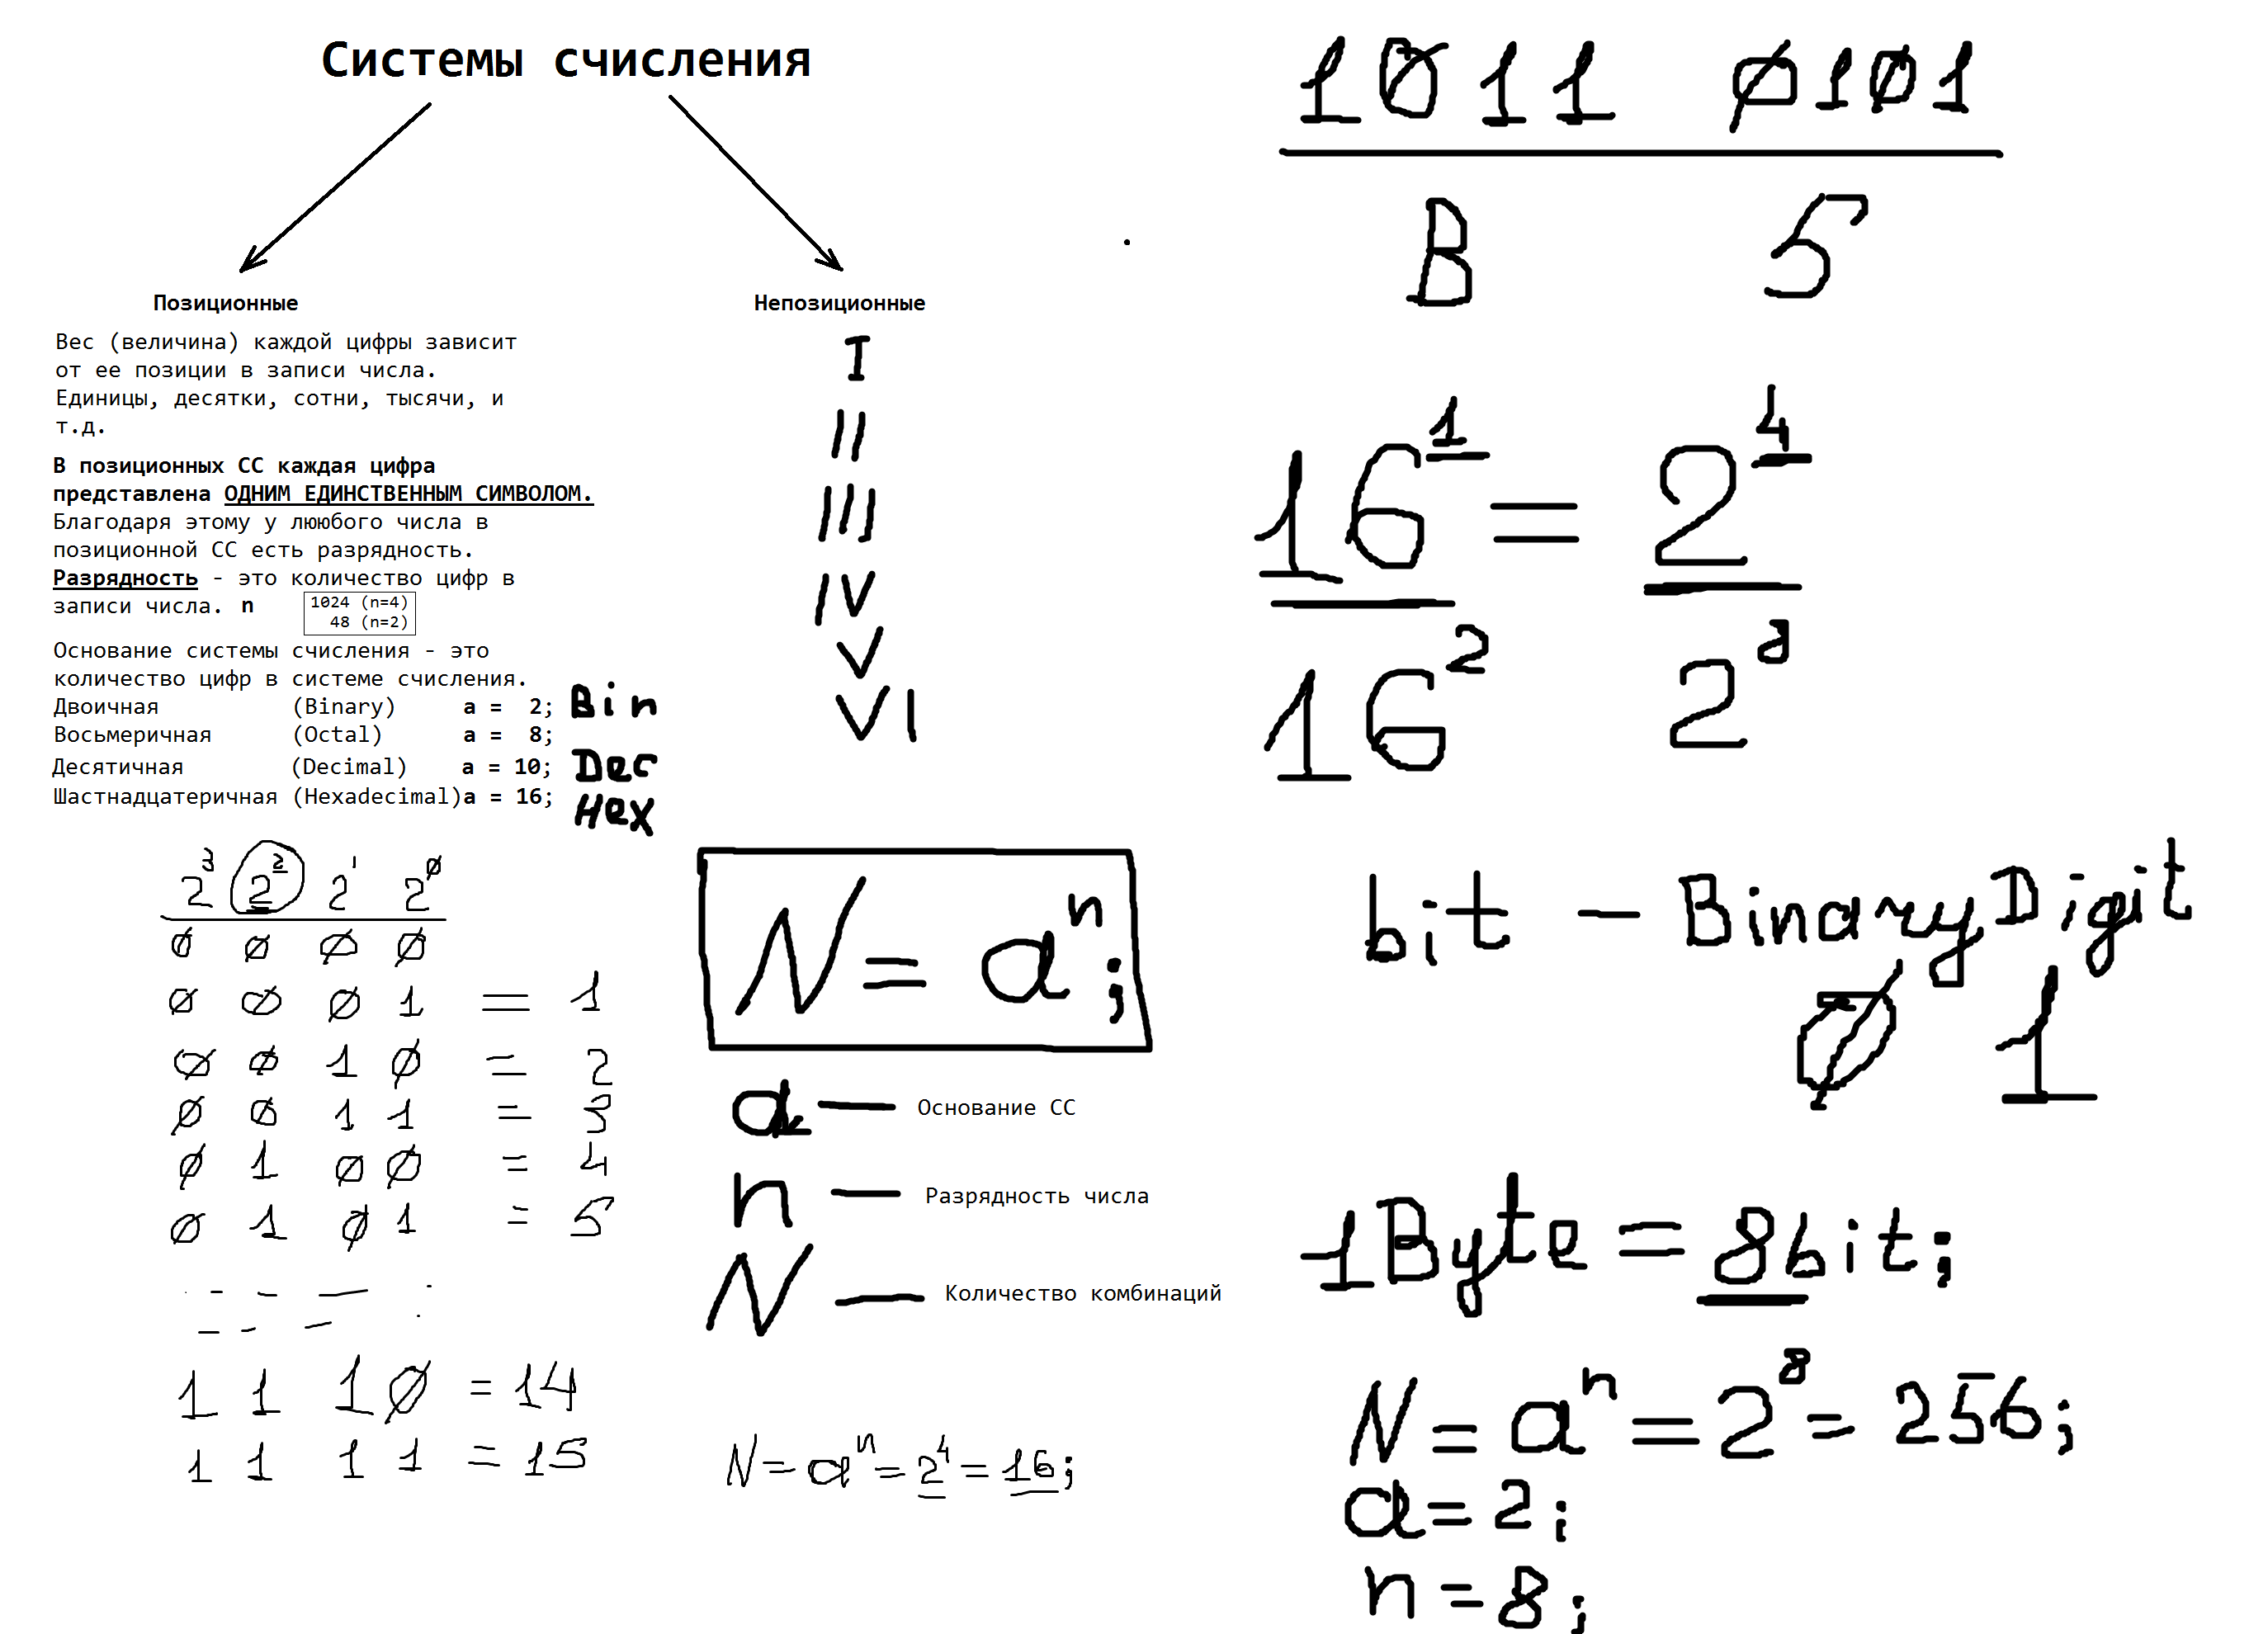 Системы счисления
Позиционные
Вес (величина) каждой цифры зависит
от ее позиции в записи числа.
Единицы, десятки, сотни, тысячи, и
т.д.
В позиционных СС каждая цифра
представлена ОДНИМ ЕДИНСТВЕННЫМ СИМВОЛОМ.
Благодаря этому у лююбого числа в
позиционной СС есть разрядность.
Разрядность - это количество цифр в
записи числа. n
1024 (n=4)
48 (n=2)
Основание системы счисления - это
количество цифр в системе счисления.
Двоичная (Binary) a = 2; Bin
Восьмеричная (Octal) a = 8;
Десятичная (Decimal) a = 10; Dec
Шастнадцатеричная (Hexadecimal)a = 16; Hex
2³ 2² 2¹ 2⁰
0 0 0 0
0 0 0 1 = 1
0 0 1 0 = 2
0 0 1 1 = 3
0 1 0 0 = 4
0 1 0 1 = 5
1 1 1 0 = 14
1 1 1 1 = 15
Непозиционные
I
II
III
IV
V
VI
N = aⁿ;
a — Основание СС
n — Разрядность числа
N — Количество комбинаций
N = aⁿ = 2⁴ = 16;
1011 0101
B 5
16¹ = 2⁴
16² 2⁸
bit - Binary Digit
0 1
1Byte = 8bit;
N = aⁿ = 2⁸ = 256;
a = 2;
n = 8;